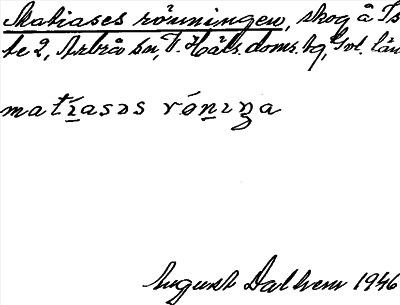 Matiases rönningen, skog å Ts
te 2, Arbrå sn, V. Häls. doms. hg, Gvl. län
matíasəs rǿnıŋa
August Dalhem 1946